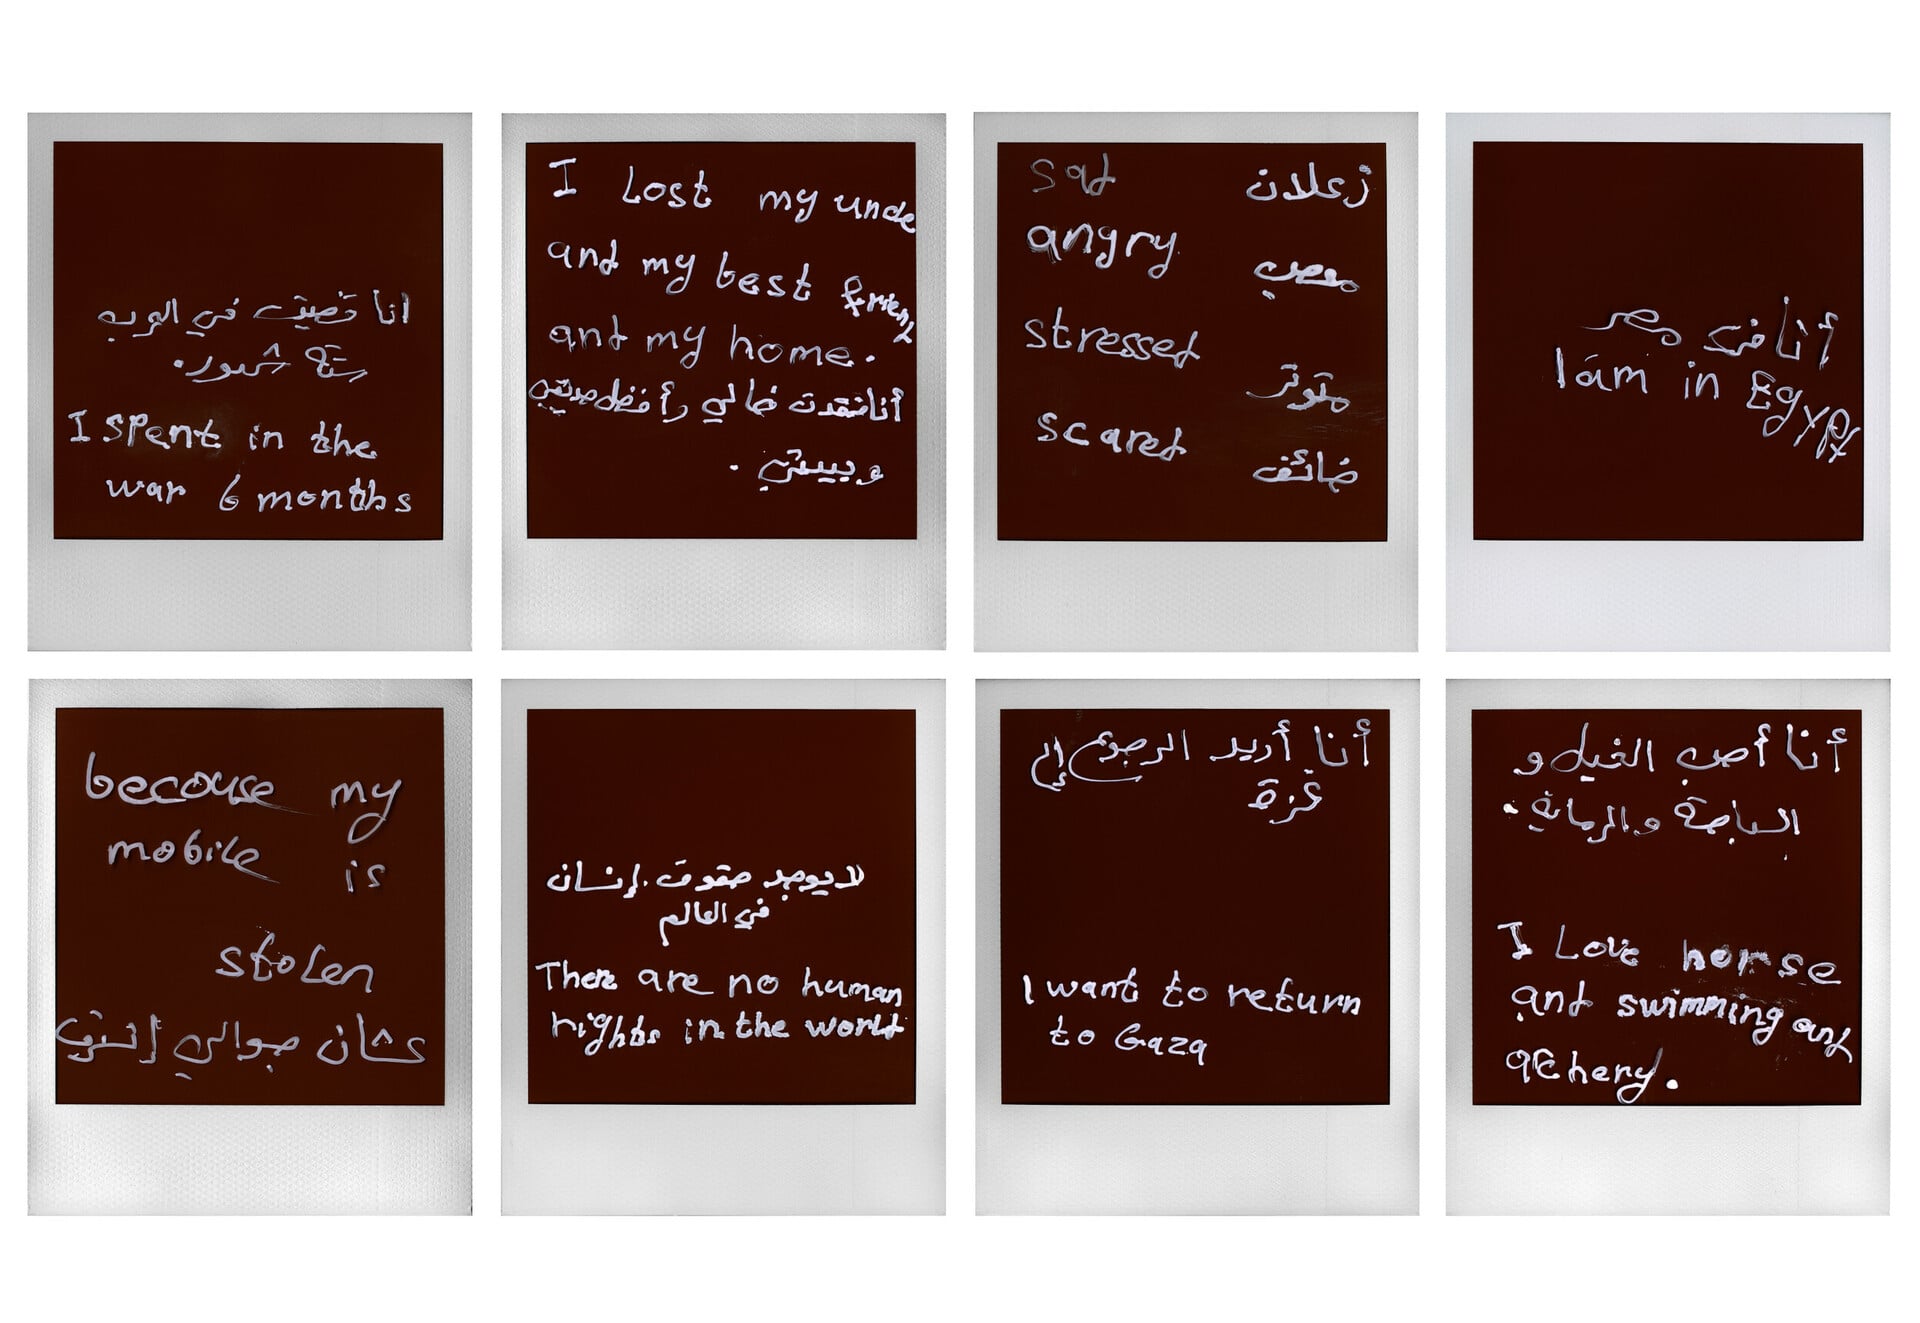 انا قضيت في الحرب
ستة شهور.
I spent in the
war 6 months
I Lost my uncle
and my best friend
and my home.
أنا فقدت خالي وأفضل صديقي
وبيتي.
sad زعلان
angry معصب
stressed متوتر
scared خائف
أنا في مصر
I am in Egypt
because my
mobile is
stolen
عشان جوالي إنسرق
لا يوجد حقوق إنسان
في العالم
There are no human
rights in the world
أنا أريد الرجوع إلى
غزة
I want to return
to Gaza
أنا أحب الخيل و
السباحة والرماية.
I Love horse
and swimming and
archery.